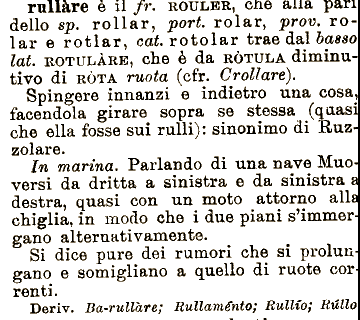 rullàre è il fr. ROULER, che alla pari
dello sp. rollar, port. rolar, prov. ro-
lar e rotlar, cat. rotolar trae dal basso
lat. ROTULÀRE, che è da RÒTULA diminu-
tivo di RÒTA ruota (cfr. Crollare).
Spingere innanzi e indietro una cosa,
facendola girare sopra se stessa (quasi
che ella fosse sui rulli): sinonimo di Ruz-
zolare.
In marina. Parlando di una nave Muo-
versi da dritta a sinistra e da sinistra a
destra, quasi con un moto attorno alla
chiglia, in modo che i due piani s'immer-
gano alternativamente.
Si dice pure dei rumori che si prolun-
gano e somigliano a quello di ruote cor-
renti.
Deriv. Ba-rullàre; Rullaménto; Rullío; Rúllo